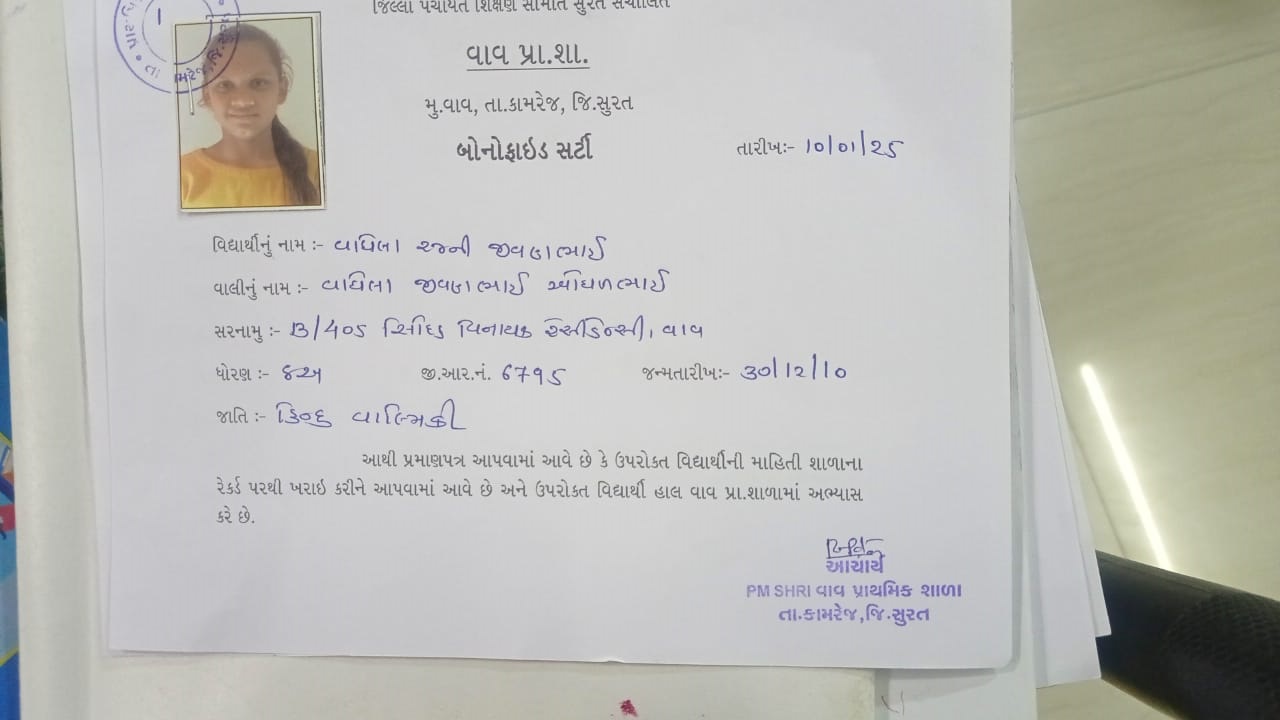 જિલ્લા પંચાયત શિક્ષણ સમિતિ સુરત સંચાલિત
વાવ પ્રા.શા.
મુ.વાવ, તા.કામરેજ, જિ.સુરત
બોનોફાઇડ સર્ટી
તારીખઃ- 10/01/25
વિદ્યાર્થીનું નામ :- વાઘેલા રજની જીવણભાઈ
વાલીનું નામ :- વાઘેલા જીવણભાઈ ઓઘળભાઈ
સરનામુ :- B/405 સિધ્ધિ વિનાયક રેસીડેન્સી, વાવ
ધોરણ :- ૮અ જી.આર.નં. 6795 જન્મતારીખઃ- 30/12/10
જાતિ :- હિન્દુ વાલ્મિકી
આથી પ્રમાણપત્ર આપવામાં આવે છે કે ઉપરોકત વિદ્યાર્થીની માહિતી શાળાના
રેકર્ડ પરથી ખરાઇ કરીને આપવામાં આવે છે અને ઉપરોકત વિદ્યાર્થી હાલ વાવ પ્રા.શાળામાં અભ્યાસ
કરે છે.
આચાર્ય
PM SHRI વાવ પ્રાથમિક શાળા
તા.કામરેજ,જિ.સુરત